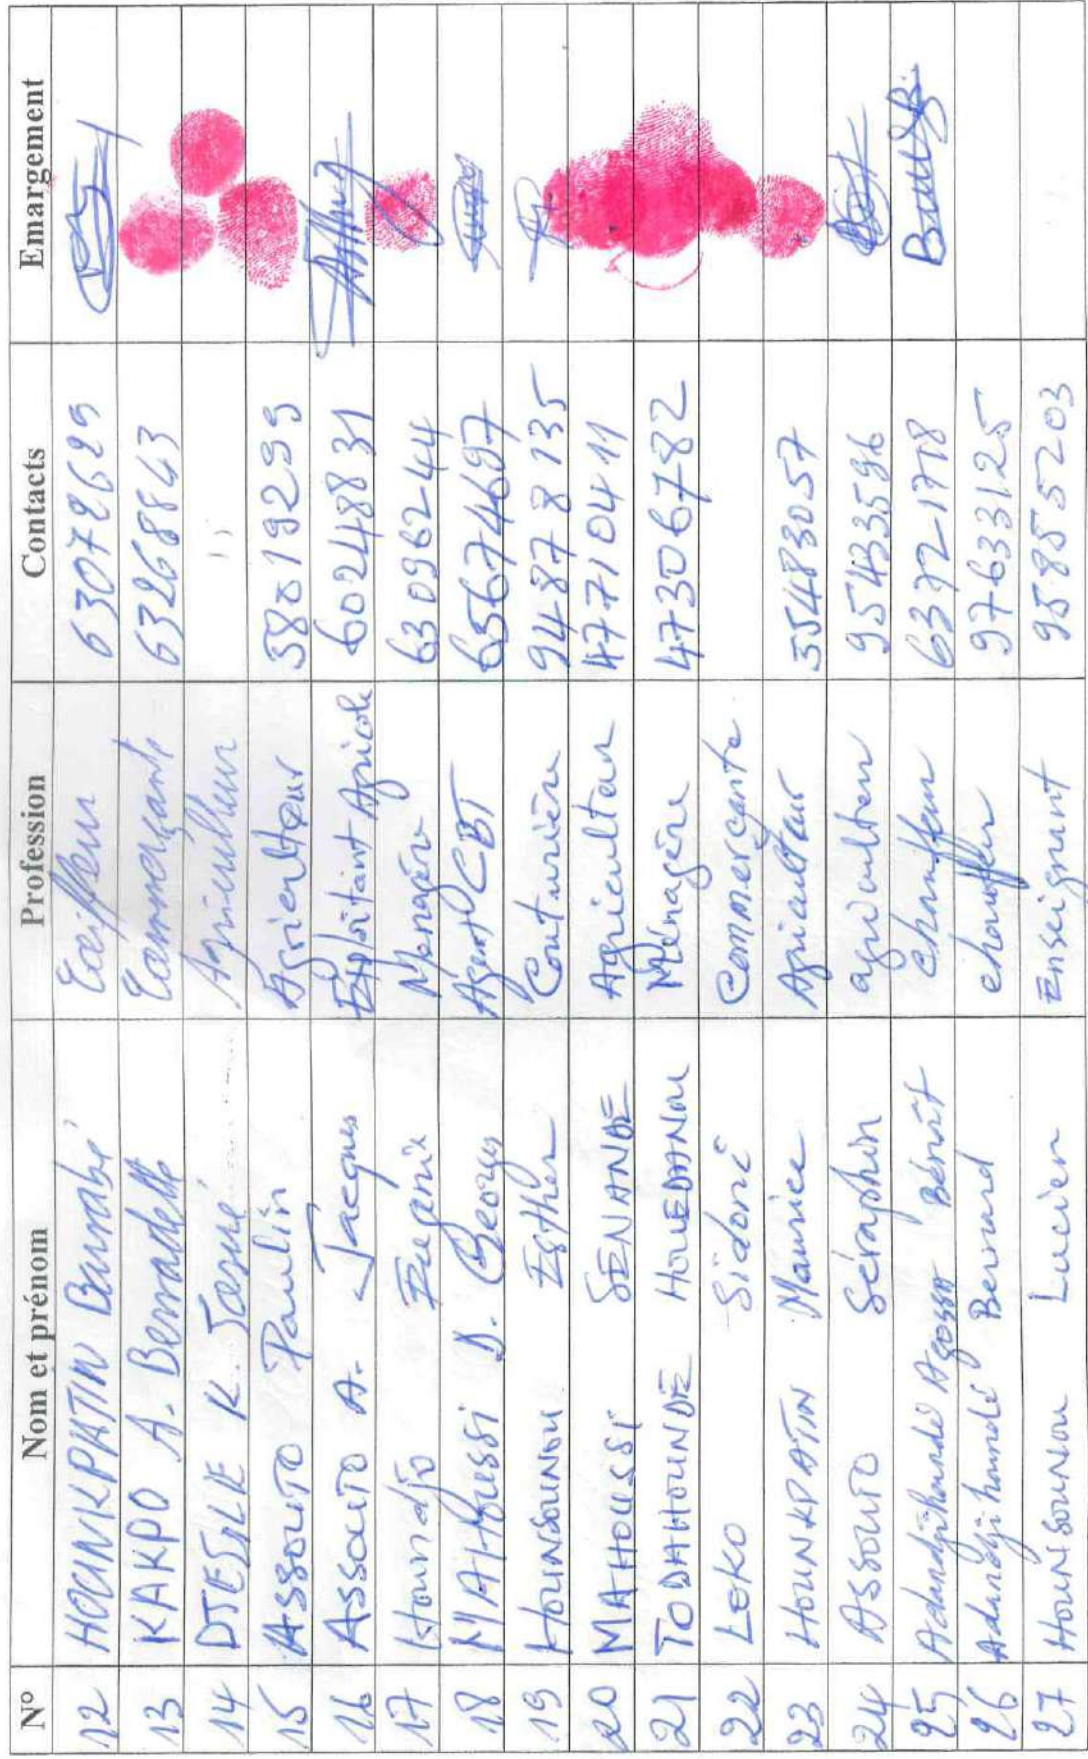 N° Nom et prénom Profession Contacts Emargement
12 HOUNKPATIN Barnabé Coiffeur 63072629
13 KAKPO A. Bernadette Commerçante 63268843
14 K. Josué Agriculteur
15 ASSOUTO Paulin Agriculteur 58019299
16 ASSOUTO A. Jacques Exploitant Agricole 60248831
17 Houndjo Eugénie Menagère 63096244
18 MAHOUSSI D. Georges Agent CBT 65674697
19 HOUNSOUNOU Esther Couturière 94878135
20 MAHOUSSI SENANDE Agriculteur 47710411
21 TODAHOUNDE HOUEDANOU Ménagère 47306782
22 LOKO Sidoni Commerçante
23 HOUNKPATIN Maurice Agriculteur 55483057
24 ASSOUTO Séraphin agriculteur 95433596
25 Adandjihoundé Agossa Bénoît chauffeur 63721718
26 Adandjihoundé Bernard chauffeur 97633125
27 HOUNSOUNOU Lucien Enseignant 95855203